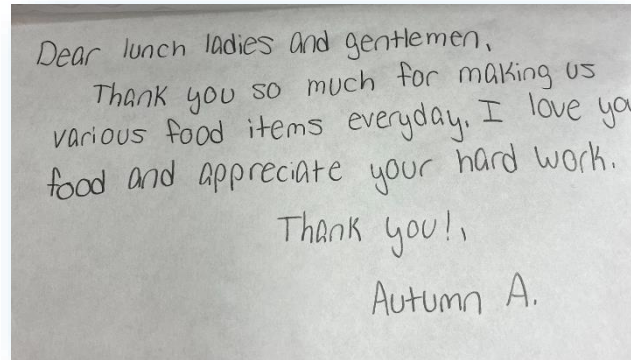 Dear lunch ladies and gentlemen,
Thank you so much for making us
various food items everyday. I love yo
food and appreciate your hard work.
Thank you!,
Autumn A.